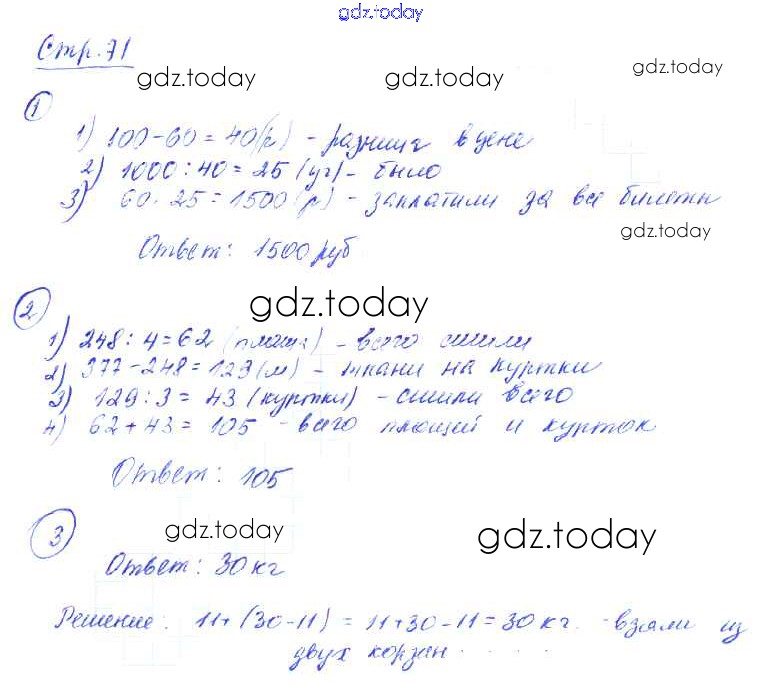 gdz.today
Стр. 71
gdz.today gdz.today gdz.today
1
1) 100-60=40(р) - разница в цене
2) 1000:40=25 (уч) - было
3) 60·25=1500(р) - заплатили за все билеты
gdz.today
Ответ: 1500 руб
2 gdz.today
1) 248:4=62 (плаща) - всего сшили
2) 377-248=129(м) - ткани на куртки
3) 129:3=43 (куртки) - сшили всего
4) 62+43=105 - всего плащей и курток
Ответ: 105
3 gdz.today gdz.today
Ответ: 30 кг
Решение: 11+(30-11)=11+30-11=30 кг. - взяли из
двух корзин